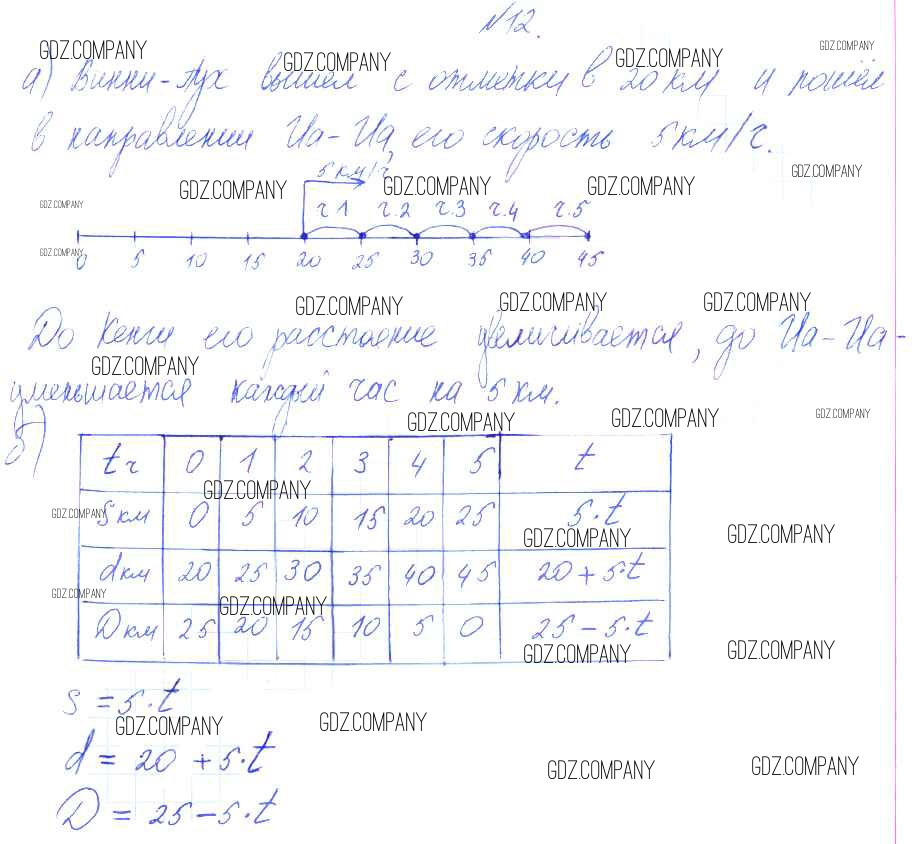 №12.
GDZ.COMPANY GDZ.COMPANY GDZ.COMPANY GDZ.COMPANY
а) Винни-Пух вышел с отметки в 20 км и пошёл
в направлении Иа-Иа, его скорость 5 км/ч.
GDZ.COMPANY
5 км/ч
GDZ.COMPANY GDZ.COMPANY GDZ.COMPANY
GDZ.COMPANY
ч.1 ч.2 ч.3 ч.4 ч.5
GDZ.COMPANY
0 5 10 15 20 25 30 35 40 45
GDZ.COMPANY GDZ.COMPANY GDZ.COMPANY
До Кенги его расстояние увеличивается, до Иа-Иа-
GDZ.COMPANY
уменьшается каждый час на 5 км.
GDZ.COMPANY GDZ.COMPANY GDZ.COMPANY
б)
t ч 0 1 2 3 4 5 t
GDZ.COMPANY
S км 0 5 10 15 20 25 5·t
GDZ.COMPANY GDZ.COMPANY GDZ.COMPANY
d км 20 25 30 35 40 45 20 + 5·t
GDZ.COMPANY GDZ.COMPANY
D км 25 20 15 10 5 0 25 - 5·t
GDZ.COMPANY GDZ.COMPANY
s = 5·t
GDZ.COMPANY GDZ.COMPANY
d = 20 + 5·t
GDZ.COMPANY GDZ.COMPANY
D = 25 - 5·t